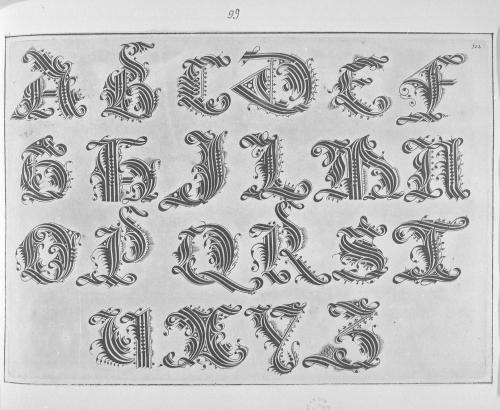 99
A B C D E F
G H J L M N
O P Q R S T
U X Y Z